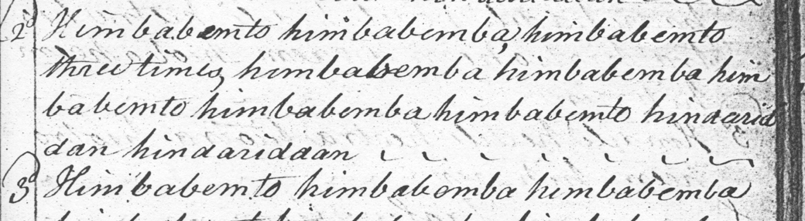 2d Himbabemto himbabemba, himbabemto
three times, himbabemba himbabemba him
babemto himbabemba himbabemto hindarid
dan hindariddan
3d Himbabemto himbabomba himbabemba